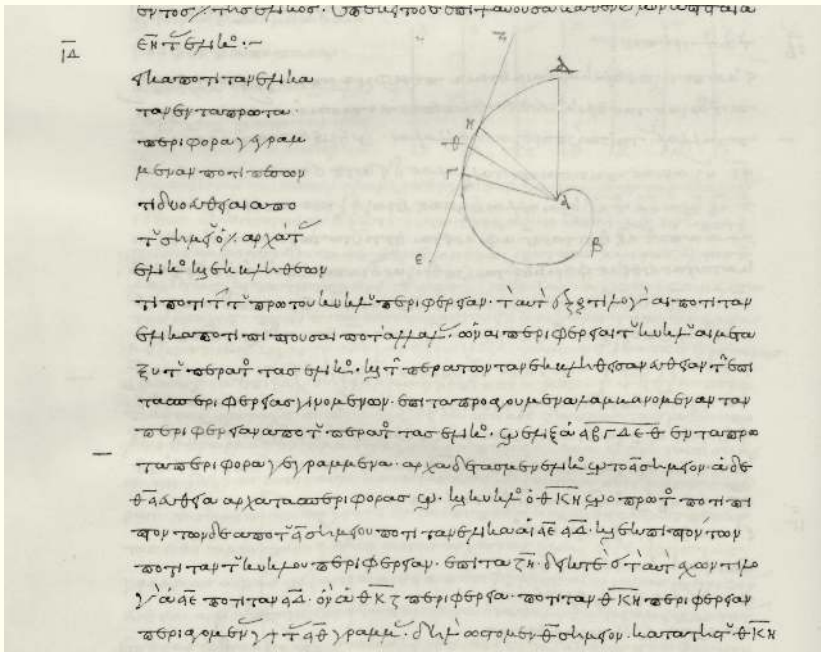 ἐντὸς τῆς ἕλικος
ΙΔ
εἴ κα ποτὶ τὰν ἕλικα
τὰν ἐν τα πρωτα
περιφορα γεγραμ
μέναν ποτιπέσων
τι δύο εὐθεῖαι ἀπὸ
τοῦ σημείου ὅ ἐστιν ἀρχὰ τᾶς
ἕλικος καὶ ἐκβληθέων
τι ποτὶ τὰν τοῦ πρώτου κύκλου περιφέρειαν. τὸν αὐτὸν ἑξοῦντι λόγον αἱ ποτὶ τὰν
ἕλικα ποτιπίπτουσαι ποτ' ἀλλάλας, ὃν αἱ περιφέρειαι τοῦ κύκλου αἱ μετα
ξὺ τοῦ πέρατος τᾶς ἕλικος. καὶ τῶν περάτων τᾶν ἐκβληθεισᾶν εὐθειᾶν τῶν ἐπὶ
τᾶς περιφερείας γινομένων. ἐπὶ τὰ προαγούμενα λαμβανομέναν τᾶν
περιφερειᾶν ἀπὸ τοῦ πέρατος τᾶς ἕλικος. ἔστω ἕλιξ ἁ ΑΒΓΔΕΘ ἐν τα πρώ
τα περιφορα γεγραμμένα. ἀρχὰ δὲ τᾶς μὲν ἕλικος ἔστω τὸ Α σημεῖον. ἁ δὲ
ΘΑ εὐθεῖα ἀρχὰ τᾶς περιφορᾶς ἔστω. καὶ κύκλος ὁ ΘΚΗ ἔστω ὁ πρῶτος ποτιπι
πτόντων δὲ ἀπὸ τοῦ Α σημείου ποτὶ τὰν ἕλικα αἱ ΑΕ ΑΔ. καὶ ἐκπιπτόντων
ποτὶ τὰν τοῦ κύκλου περιφέρειαν. ἐπὶ τα ΖΗ. δεικτέον ὅτι τὸν αὐτὸν ἔχωντι λό
γον ἁ ΑΕ ποτὶ τὰν ΑΔ. ὃν ἁ ΘΚΖ περιφέρεια. ποτὶ τὰν ΘΚΗ περιφέρειαν
περιαγομένας γὰρ τᾶς ΑΘ γραμμᾶς. δῆλον ὡς τὸ μὲν Θ σημεῖον. κατὰ τῆς τοῦ ΘΚΗ
Ζ
Δ
Η
Θ
Γ
Α
Β
Ε